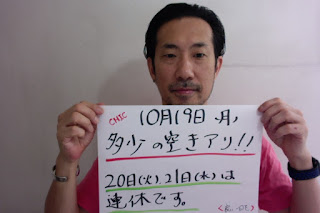 CHIC
10月19日(月)
多少の空きアリ!!
20日(火)21日(水)は
連休です。